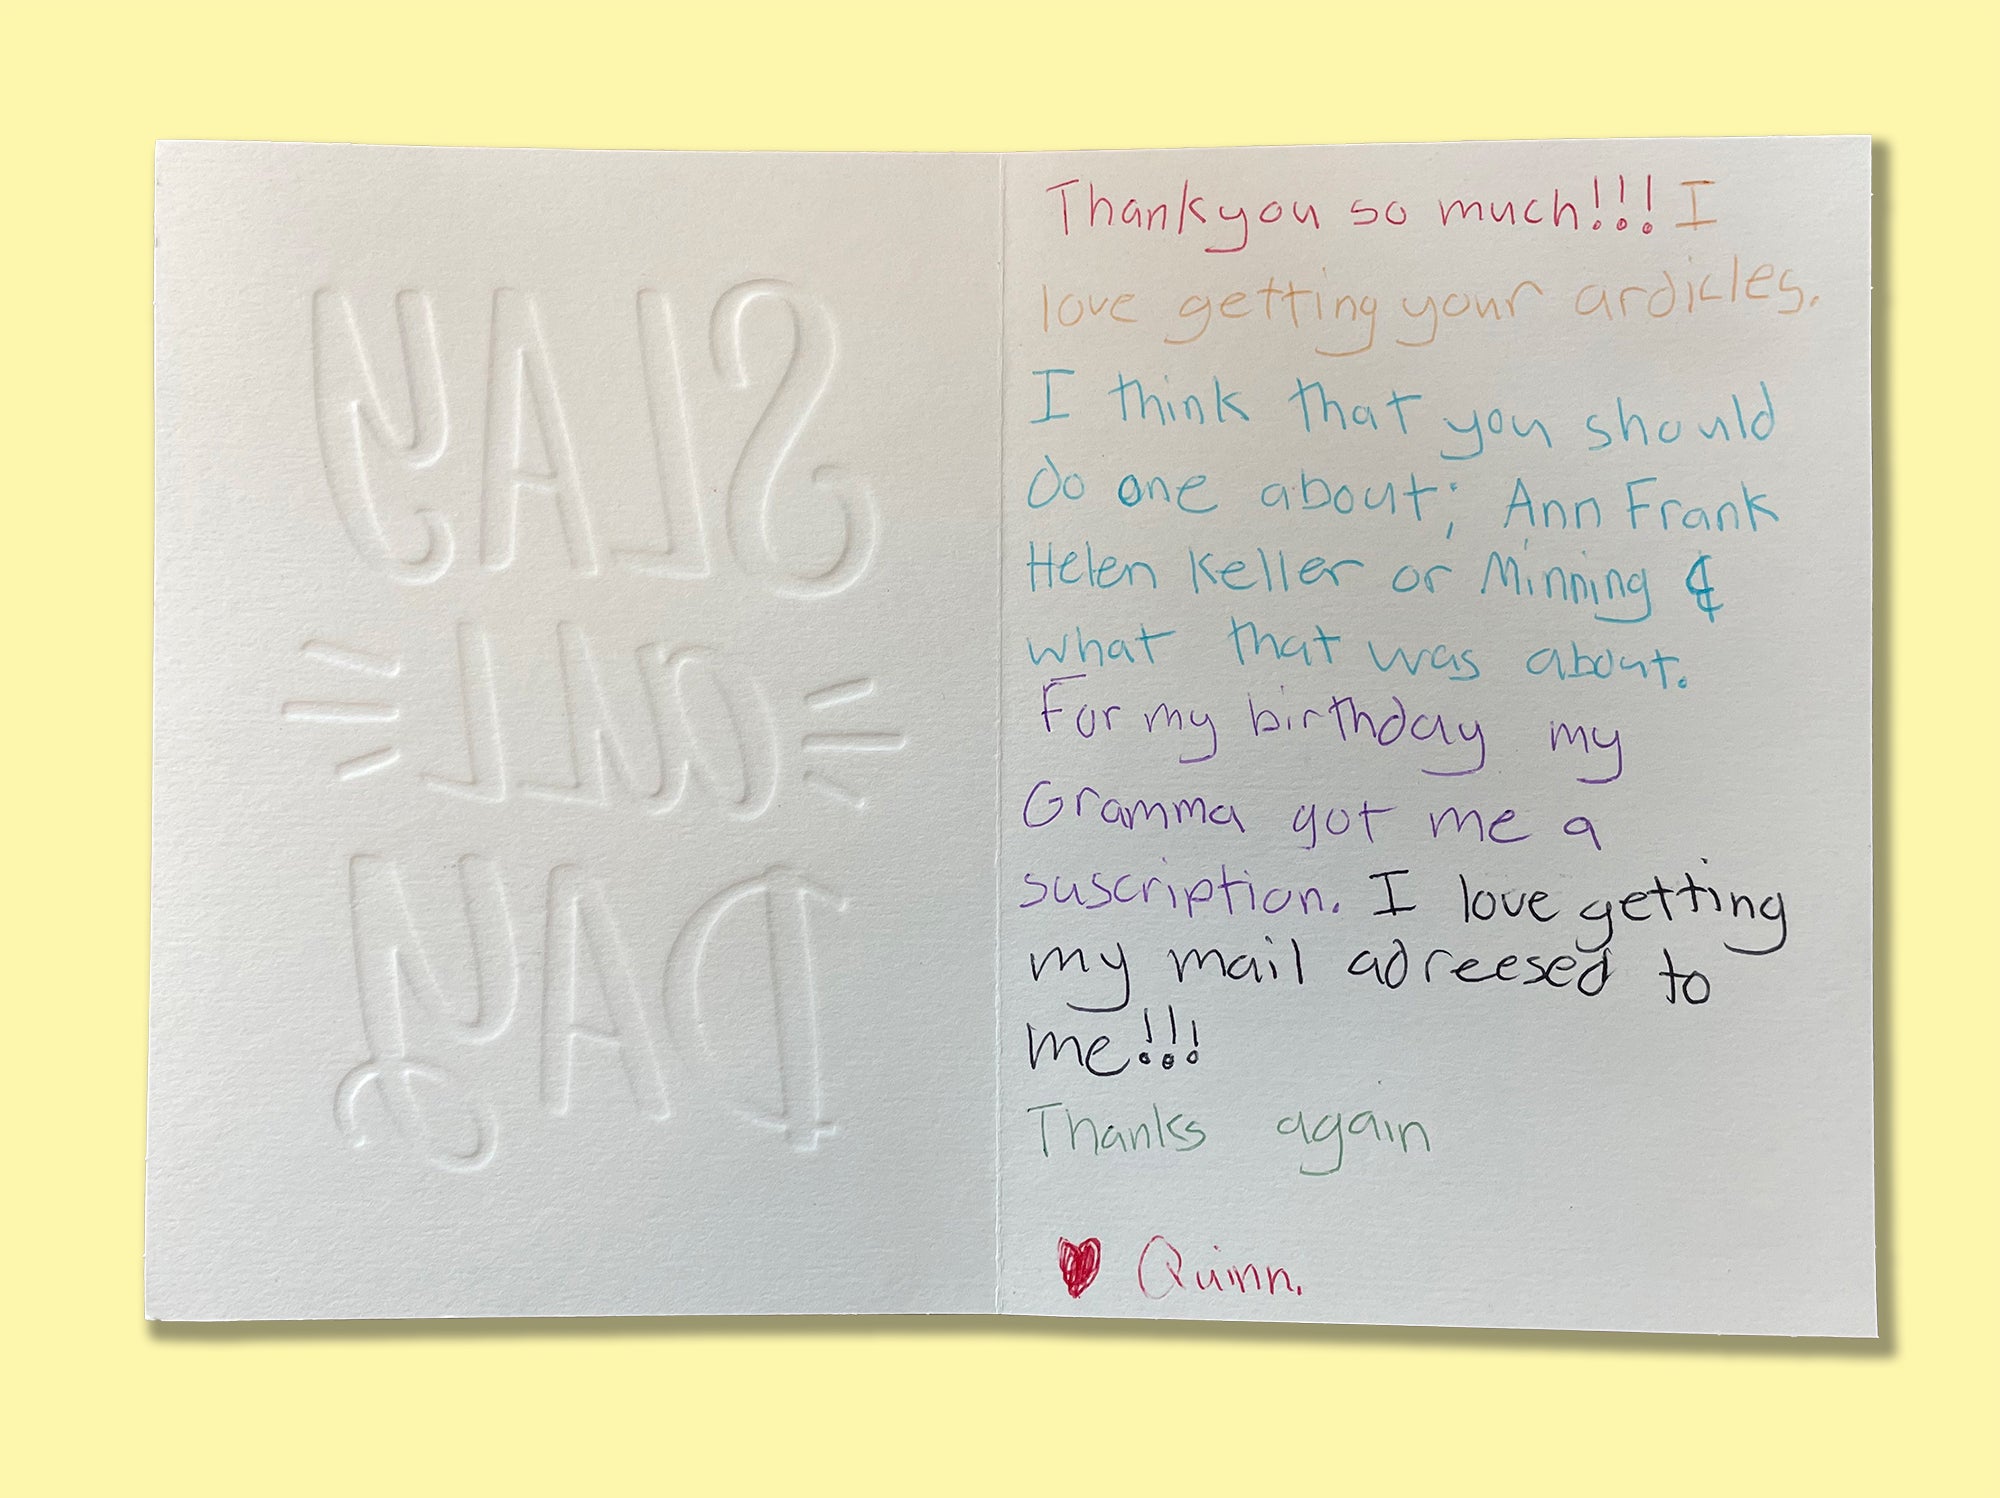 SLAY
all
DAY
Thankyou so much!!! I
love getting your ardicles.
I think that you should
do one about; Ann Frank
Helen Keller or Minning &
what that was about.
For my birthday my
Gramma got me a
suscription. I love getting
my mail adreesed to
me!!!
Thanks again
♥ Quinn.